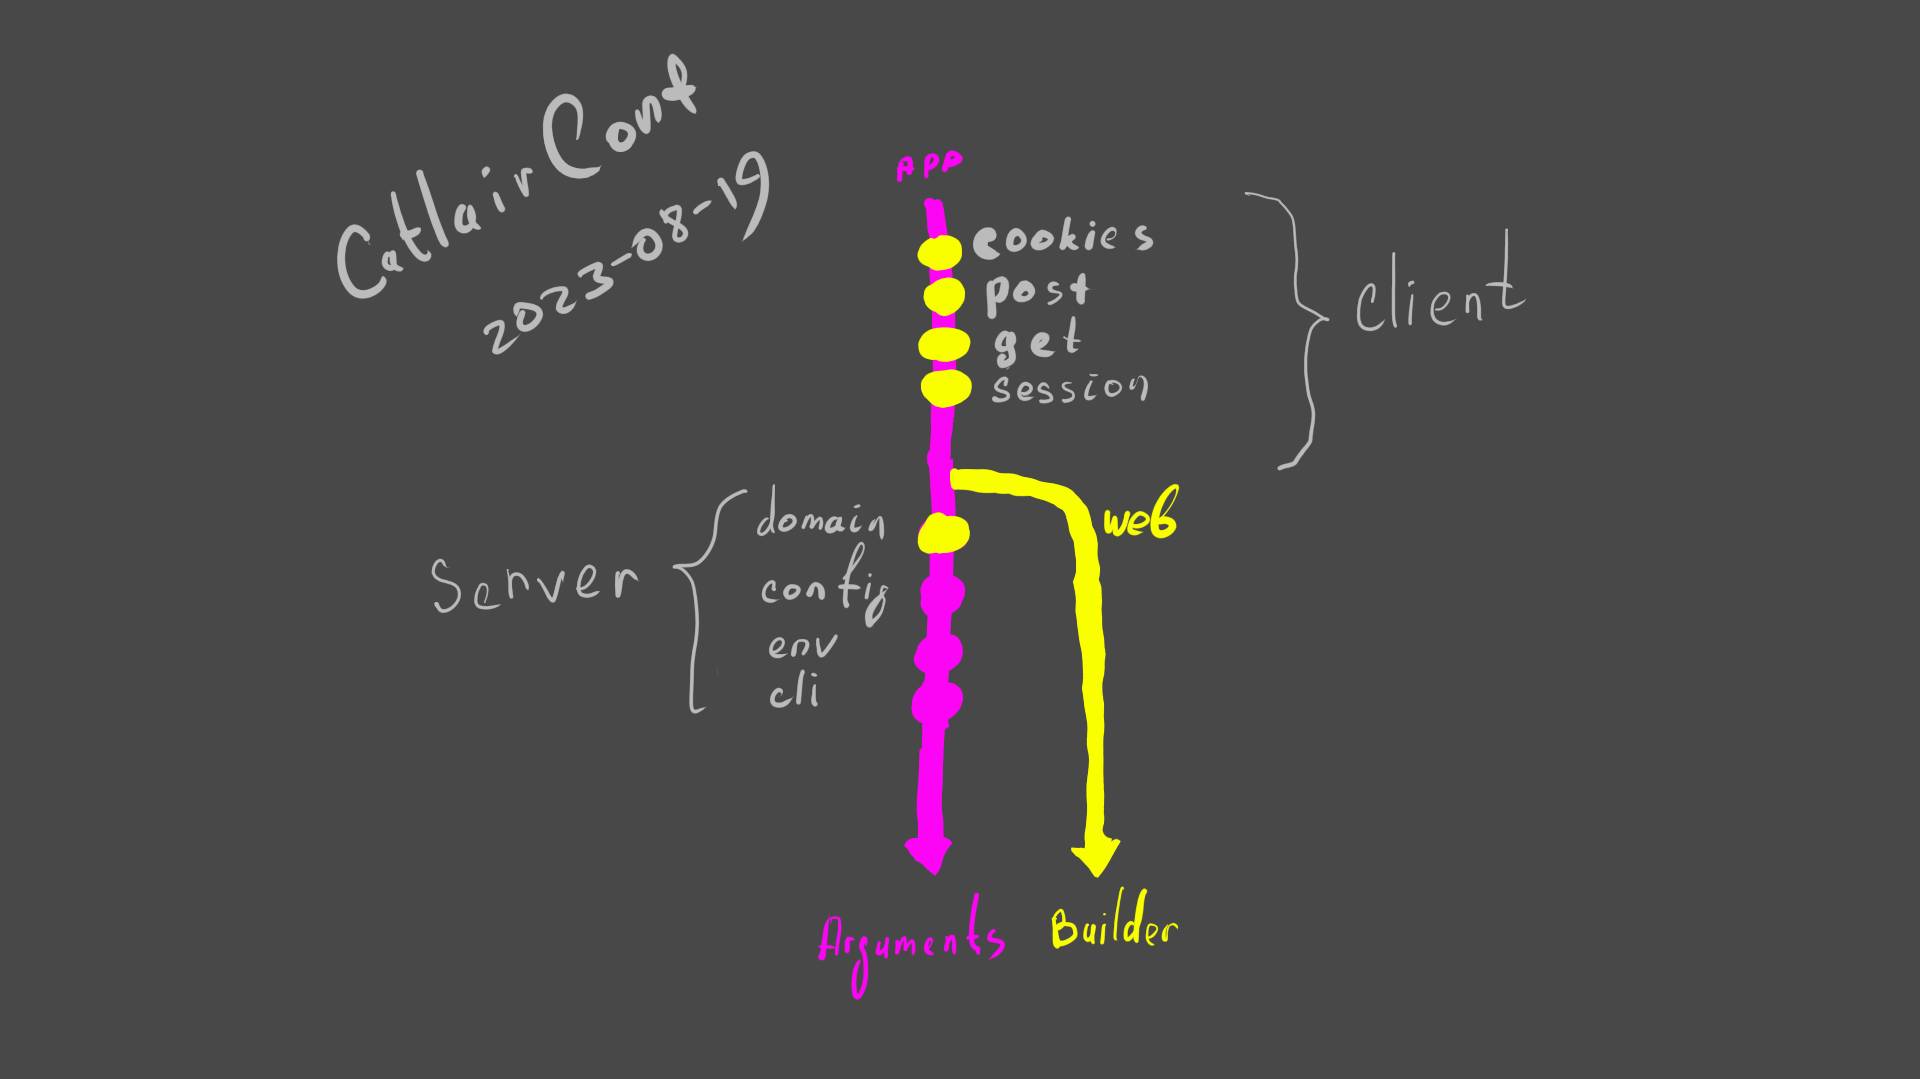 Catlair Conf
2023-08-19
APP
cookies
post
get
session
Client
web
Server
domain
config
env
cli
Arguments
Builder